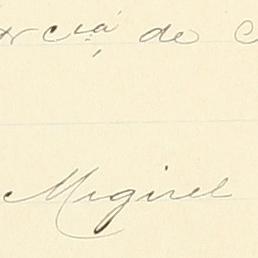 rcia de
Miguel